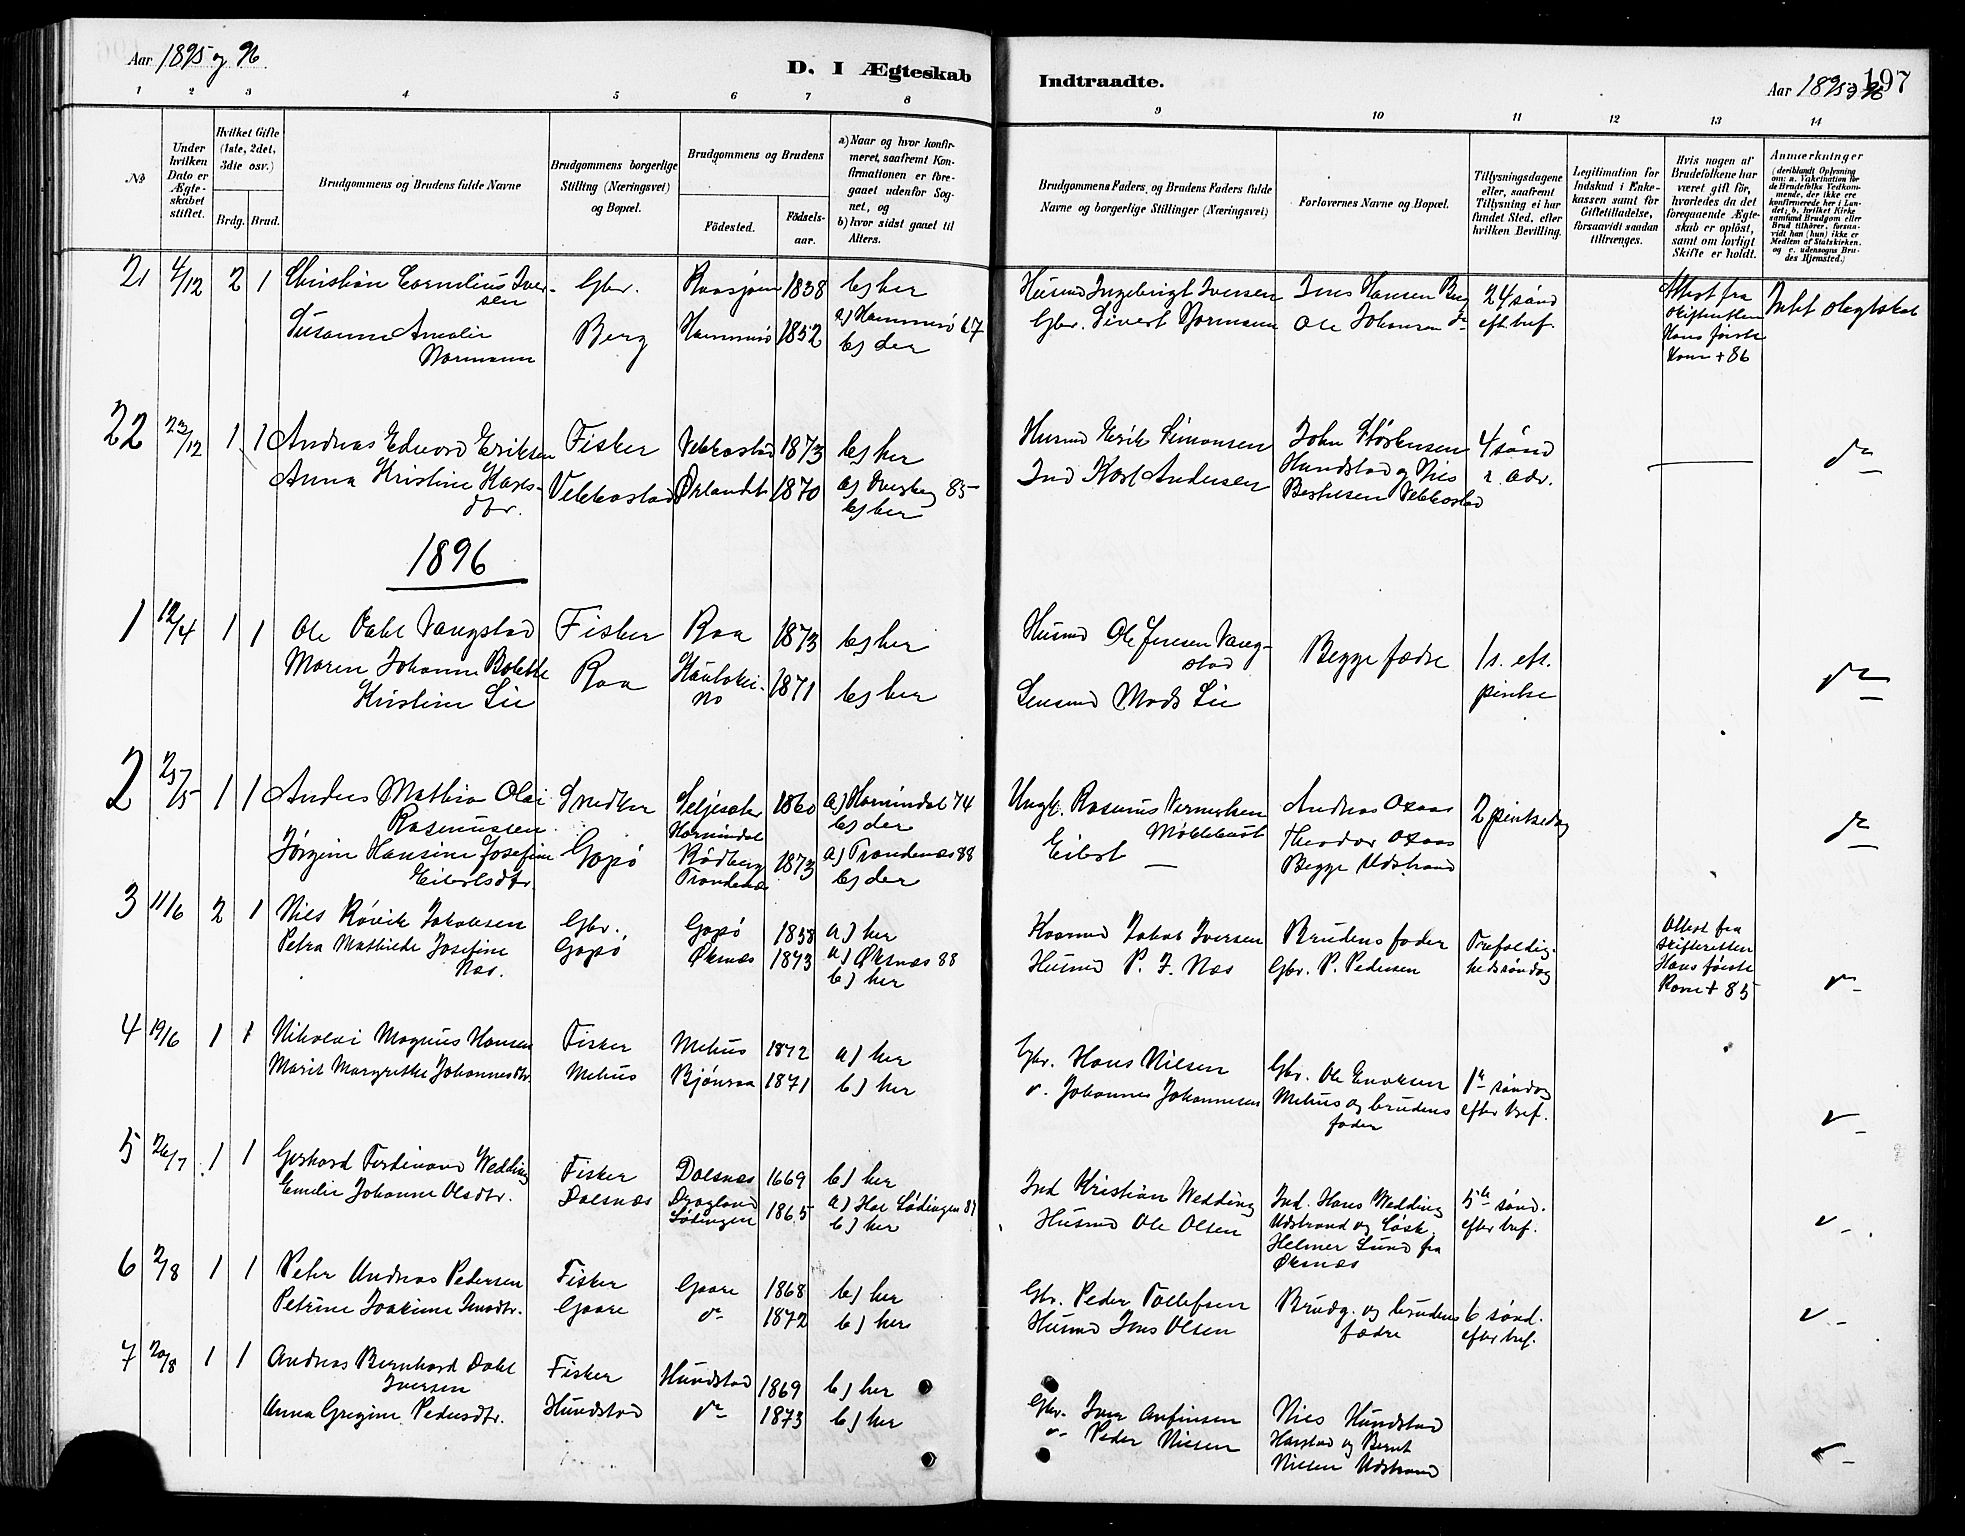 Aar 1895 og 96.
D. I Ægteskab
Indtraadte.
Aar 1895 og 96
197
1 2 3 4 5 6 7 8
9 10 11 12 13 14
No
Under hvilken Dato er Ægteskabet stiftet.
Hvilket Gifte (1ste, 2det, 3die osv.)
Brdg. Brud.
Brudgommens og Brudens fulde Navne
Brudgommens borgerlige Stilling (Næringsvei) og Bopæl.
Brudgommens og Brudens
Fødested.
Fødselsaar.
a) Naar og hvor konfirmeret, saafremt Konfirmationen er foregaaet udenfor Sognet, og
b) hvor sidst gaaet til Alters.
Brudgommens Faders og Brudens Faders fulde Navne og borgerlige Stillinger (Næringsvei)
Forlovernes Navne og Bopæl.
Tillysningsdagene eller, saafremt Tillysning ei har fundet Sted, efter hvilken Bevilling.
Legitimation for Indskud i Enkekassen samt for Giftetilladelse, forsaavidt saadan tiltrænges.
Hvis nogen af Brudefolkene har været gift før, hvorledes da det foregaaende Ægteskab er opløst, samt om lovligt Skifte er holdt.
Anmærkninger
(deriblandt Oplysning om: a. Vakcination for de Brudefolks Vedkommende, der ikke ere konfirmerede her i Landet; b. hvilket Kirkesamfund Brudgom eller Brud tilhører, forsaavidt han (hun) ikke er Medlem af Statskirken, og c. udensogns Brudes Hjemsted.)
21 4/12 2 1 Christian Cornelius Iversen Gbr. 1838 b) her
Susanne Amalie Normann Berg Hammerø 1852 a) Hammerø 67 b) der
Husmd Ingebrigt Iversen Jens Hansen Berg 24 sønd
Gbr. Sivert Normann Ole Johansen do eft. tref.
Attest fra skifteretten Hans første Kone + 86
Intet slægtskab
22 23/12 1 1 Andreas Edvard Eriksen Fisker Vebbostad 1873 b) her
Anna Kristine Karlsdtr. Vebbostad Ørlandet 1870 85 b) her
Husmd Erik Simonsen John Størkersen 4 sønd
Ind Karl Andersen Hundstad og Nils Berntsen Vebbostad i adv.
do
1896
1 12/4 1 1 Ole Dahl Vangstad Fisker Raa 1873 b) her
Maren Johanne Bolette Kristine Lie Raa Kautokeino 1871 b) her
Husmd Ole Jensen Vangstad Begge fædre 1 s. eft.
Lensmd Mads Lie
do
2 25/5 1 1 Anders Mathias Olai Rasmussen Snedker Hornindal 1860 a) Hornindal 74 b) der
Jørgine Hansine Josefine Eilertsdtr. Gapø Rødberg Trondenæs 1873 a) Trondenæs 88 b) der
Ungk. Rasmus Andreas Oxaas 2 pinksedag
Eilert — Theodor Oxaas
Begge Udstrand
do
3 11/6 2 1 Nils Røvik Jakobsen Gbr. Gapø 1838 a) her
Petra Mathilde Josefine Næs. Gapø Øksnæs 1873 a) Øksnæs 88 b) her
Husmd Jakob Iversen Brudens fader Trefoldig-
Husmd P. J. Næs Gbr. P. Pedersen hedssøndag
Attest fra skifteretten Hans første Kone + 85
4 19/6 1 1 Nikolai Magnus Hansen Fisker Melius 1872 a) her
Marit Margrethe Johannesdtr. Melius Bjønraa 1871 b) her
Gbr. Hans Nilsen Gbr. Ole Enoksen 1ste søndag
Johannes Johannesen Melius og brudens fader efter tref.
5 26/7 1 1 Gerhard Ferdinand Wedding Fisker Dalsnæs 1869 b) her
Emilie Johanne Olsdtr. Dalsnæs Dragland Lødingen 1865 a) Hol Lødingen 81 b) her
Ind Kristian Wedding Ind. Hans Wedding 5te sønd.
Husmd Ole Olsen Udstrand og Løsk. Helmer Lund fra Øksnæs efter tref.
6 2/8 1 1 Peter Andreas Pedersen Fisker Gaare 1868 b) her
Petrine Joakime Jensdtr. Gaare do 1872 b) her
Gbr. Peder Tollefsen Brudg. og brudens fædre 6 sønd.
Husmd Jens Olsen efter tref.
7 20/8 1 1 Andreas Bernhard Dahl Iversen Fisker Hundstad 1869 b) her
Anna Gregine Pedersdtr. Hundstad do 1873 b) her
Gbr. Iver Arfinsen Nils Hundstad
Peder Nilsen Harstad og Bernt Nilsen Udstrand